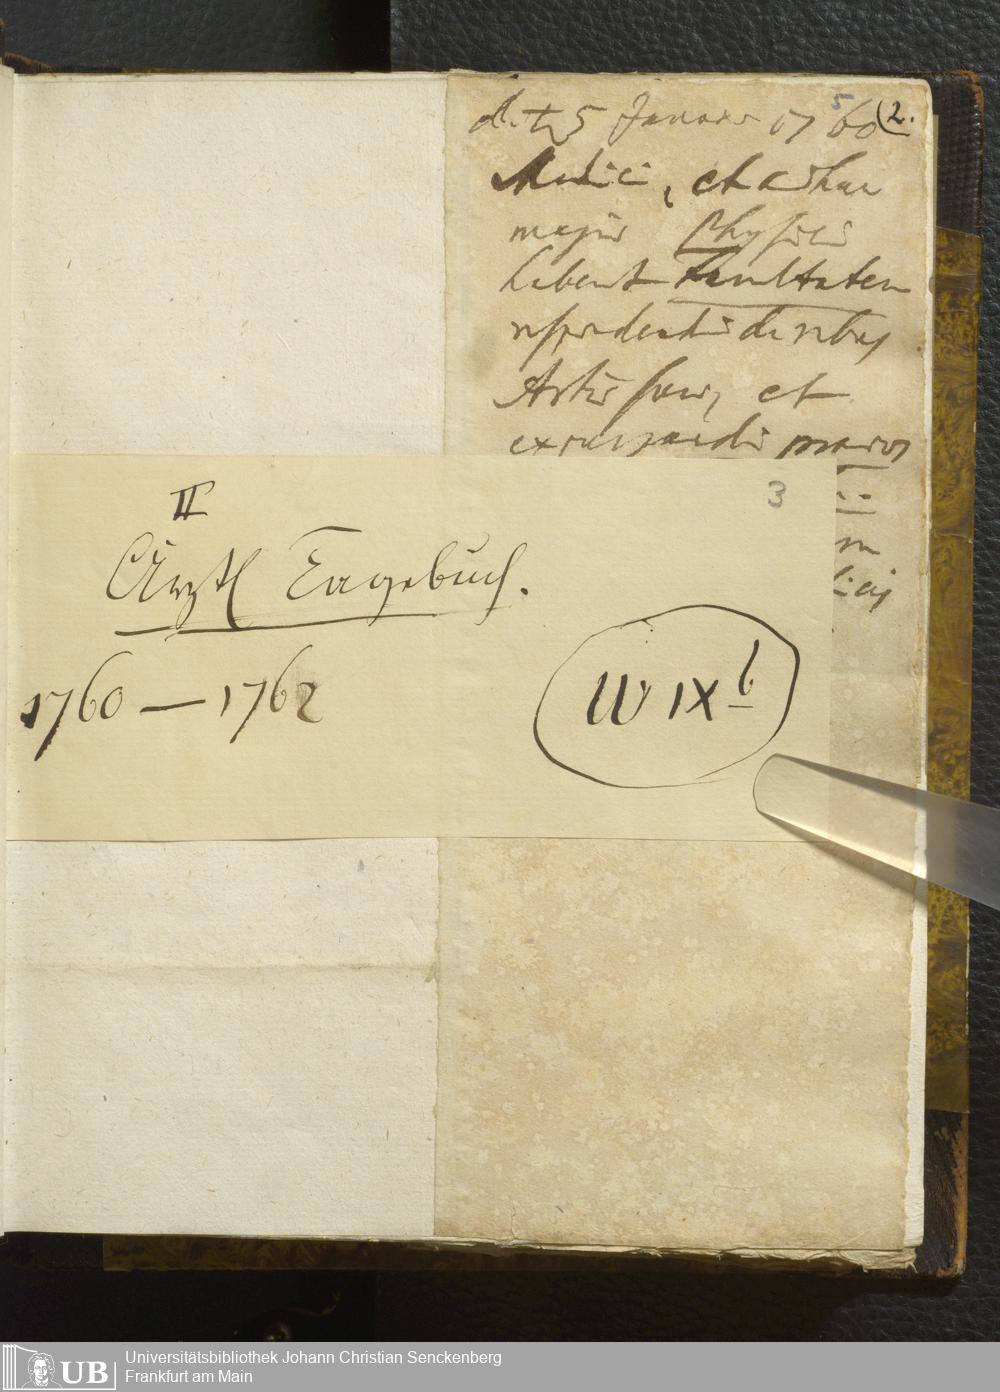 d. ♄ 5 Januar 1760
5
(2.
Medici, et adhuc
magis Physici
habent facultatem
respondendi de rebus
Artis suae, et
3
II
Ärztl Tagebuch.
1760 — 1762
W IX b
Universitätsbibliothek Johann Christian Senckenberg
UB Frankfurt am Main